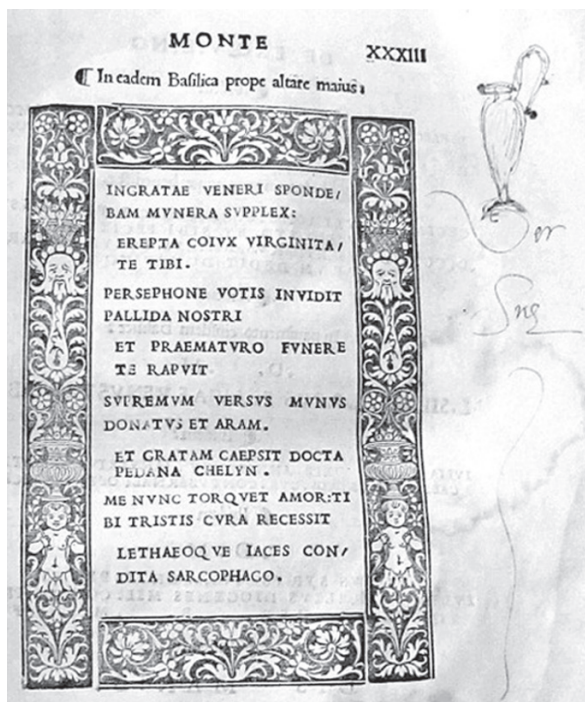 MONTE
XXXIII
¶ In eadem Basilica prope altare maiu᷒s
INGRATAE VENERI SPONDE/
BAM MVNERA SVPPLEX:
EREPTA COIVX VIRGINITA/
TE TIBI.
PERSEPHONE VOTIS INVIDIT
PALLIDA NOSTRI
ET PRAEMATVRO FVNERE
TE RAPVIT
SVPREMVM VERSVS MVNVS
DONATVS ET ARAM.
ET GRATAM CAEPSIT DOCTA
PEDANA CHELYN.
ME NVNC TORQVET AMOR:TI
BI TRISTIS CVRA RECESSIT
LETHAEOQVE IACES CON/
DITA SARCOPHAGO.